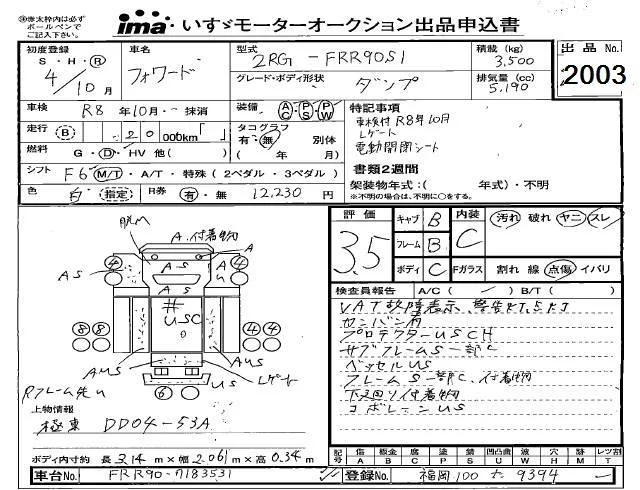 ※赤太枠内は必ず
ボールペンで
ご記入下さい。
ima いすゞモーターオークション出品申込書
初度登録 S・H・R 4/10月
車名 フォワード
型式 2RG-FRR90S1
グレード・ボディ形状 ダンプ
積載 (kg) 3,500
排気量 (cc) 5,190
出品 No. 2003
車検 R8年10月・一抹消
装備 AC・PS・PW
走行 (B) 20000km
タコグラフ 有・無 別体 ( 年 月)
燃料 G・D・HV 他( )
シフト F6 M/T・A/T・特殊(2ペダル・3ペダル)
色 白 (指定) R券 有・無 12,230円
特記事項
車検付R8年10月
Lゲート
電動開閉シート
書類2週間
架装物年式:( 年式)・不明
※不明の場合は、不明に○をする。
評価 3.5
キャブ B
フレーム B
ボディ C
内装 C
汚れ 破れ ヤニ スレ
Fガラス 割れ 線 点傷 イバリ
検査員報告 A/C( ) B/T( )
VAT故障表示、警告KT,SKJ
カンバン有
プロテクターUSCH
サブフレームS一部C
ベッセルUS
フレームS一部C、付着物
下廻り付着物
コボレーンUS
脱M
A.付着物
A
4
4
AS
AS
AU
AS
井
USC
8 8
4 4
AUS
AUS
Rフレーム先U
US
Lゲート
6
上物情報
極東 DD04-53A
ボディ内寸約 長3.14m×幅2.061m×高0.34m
記号 傷A 板金B 腐C 塗P 錆S 凹凸曲U 穴W 欠H 無M 破T レツ割
車台No. FRR90-7183531
登録No. 福岡100 た 9394